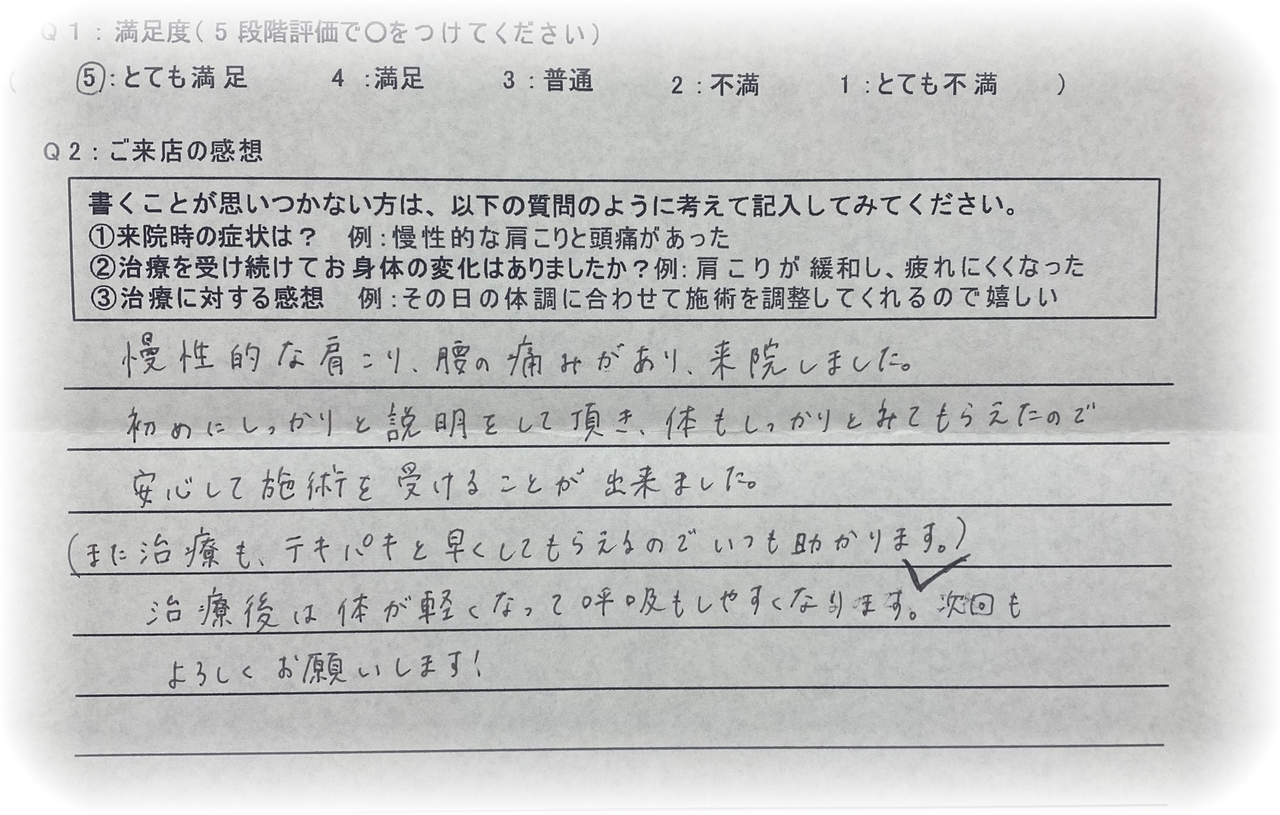 Q1：満足度（5段階評価で〇をつけてください）
（ ⑤：とても満足 4：満足 3：普通 2：不満 1：とても不満 ）
Q2：ご来店の感想
書くことが思いつかない方は、以下の質問のように考えて記入してみてください。
①来院時の症状は？ 例：慢性的な肩こりと頭痛があった
②治療を受け続けてお身体の変化はありましたか？例：肩こりが緩和し、疲れにくくなった
③治療に対する感想 例：その日の体調に合わせて施術を調整してくれるので嬉しい
慢性的な肩こり、腰の痛みがあり、来院しました。
初めにしっかりと説明をして頂き、体もしっかりとみてもらえたので
安心して施術を受けることが出来ました。
（また治療も、テキパキと早くしてもらえるのでいつも助かります。）
治療後は体が軽くなって呼吸もしやすくなります。次回も
よろしくお願いします！